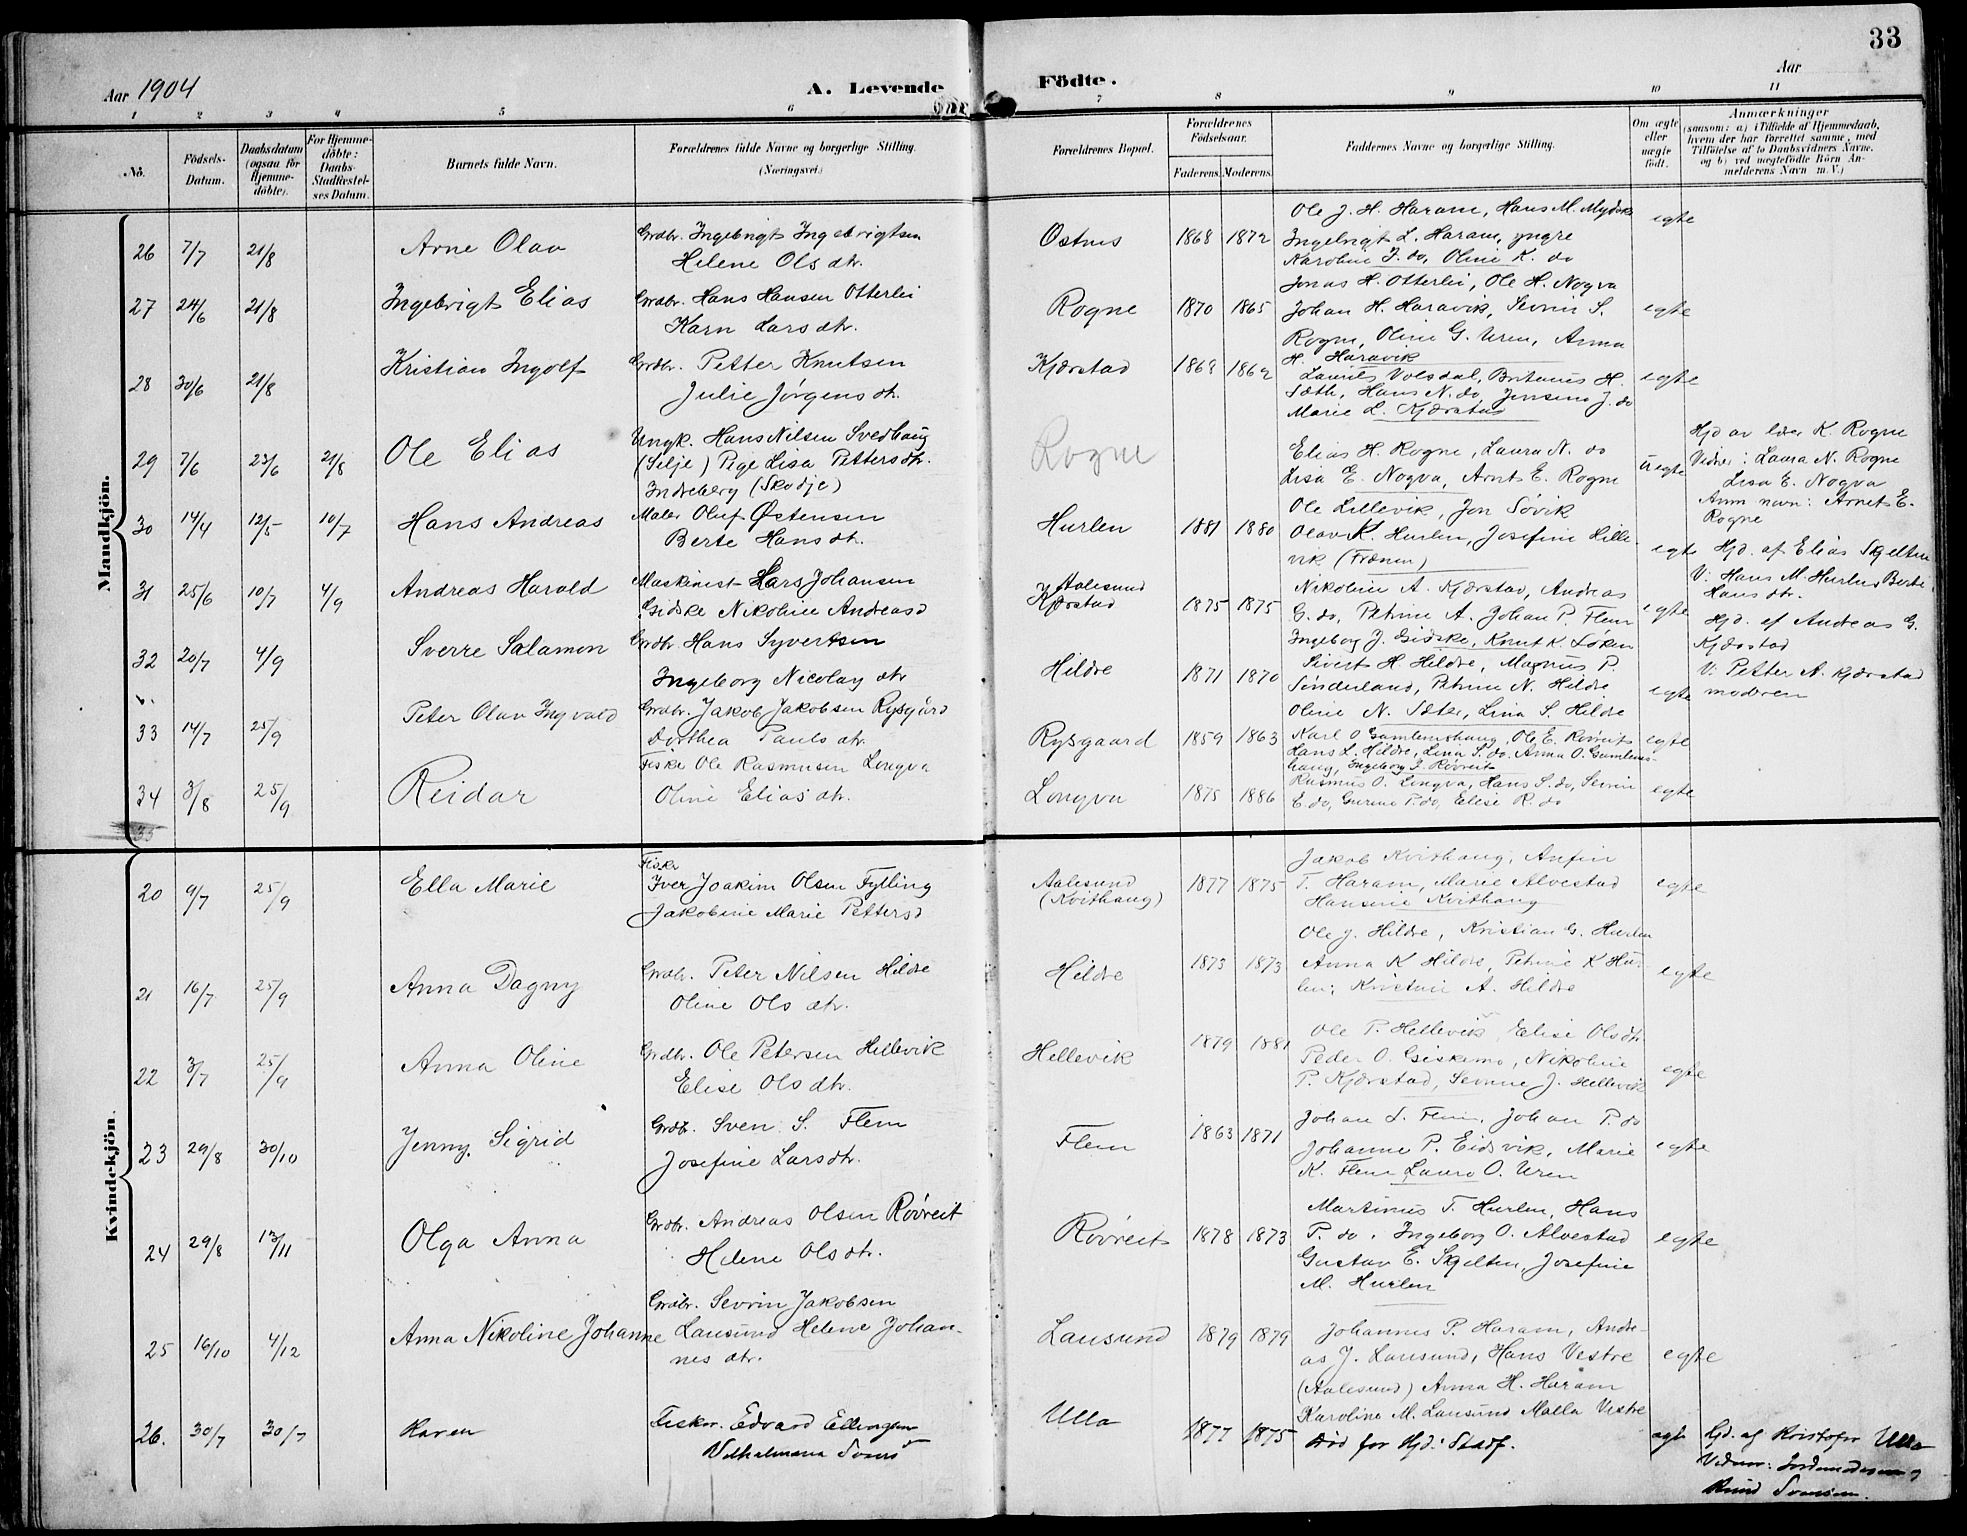 33
Aar 1904
A. Levende Födte.
Aar
1 2 3 4 5 6 7 8 9 10 11
No.
Födsels-Datum.
Daabsdatum (ogsaa för Hjemme-döbte).
For Hjemme-döbte: Daabs-Stadfæstelses Datum.
Barnets fulde Navn.
Forældrenes fulde Navne og borgerlige Stilling. (Næringsvei.)
Forældrenes Bopæl.
Forældrenes Födselsaar.
Faderens. Moderens.
Faddernes Navne og borgerlige Stilling.
Om ægte eller uægte födt.
Anmærkninger (saasom: a) i Tilfælde af Hjemmedaab, hvem der har forrettet samme, med Tilföielse af to Daabsvidners Navne, og b) ved uægtefödte Börn Anmelderens Navn m. V.)
Mandkjön.
26 7/7 21/8 Arne Olav
Grdbr. Ingebrigt Ingebrigtsen
Helene Olsdtr.
Østnes 1868 1872
Ole J. H. Haram, Hans M. Myd
Ingebrigt L. Haram, yngre
Karoline J. do, Oline K. do
egte
27 24/6 21/8 Ingebrigt Elias
Grdbr. Hans Hansen Otterlei
Karn Larsdtr.
Rogne 1870 1865
Jonas H. Otterlei, Ole H. Nogva
Johan H. Haravik, Sevrin S.
Rogne, Oline G. Uren, Anna
H. Haravik
egte
28 30/6 21/8 Kristian Ingolf
Grdbr. Petter Knutsen
Julie Jørgensdtr.
Kjærstad 1868 1862
Laurits Volsdal, Britanus H.
Sæth, Hans N. do, Jensine J. do
Marie L. Kjærstad
egte
29 7/6 23/6 21/8 Ole Elias
Ungk. Hans Nilsen Svedhaug
(Selje) Pige Lisa Pettersdtr.
Indreberg (Skodje)
Rogne
Elias H. Rogne, Laura N. do
Lisa E. Nogva, Arnt E. Rogne
uegte
Hjd av lær K. Rogne
Vidner: Laura N. Rogne
Lisa E. Nogva
Anm navn: Arnet E.
Rogne
30 14/4 12/5 10/7 Hans Andreas
Maler Oluf Østensen
Berte Hansdtr.
Hurlen 1881 1880
Ole Lillevik, Jon Søvik
Olav K. Hurlen, Josefine Lille
vik (Frænen)
egte
Hjd. af Elias Skjelten
V: Hans M. Hurlen Berte
Hansdtr.
31 25/6 10/7 4/9 Andreas Harald
Maskinist Lars Johansen
Gidske Nikoline Andreasd
Aalesund
Kjærstad 1875 1875
Nikoline A. Kjærstad, Andreas
G. do, Petrine A. Johan P. Flem
Ingeborg J. Gidske, Knut K. Løken
egte
Hjd. af Andreas G.
Kjærstad
V: Petter A. Kjærstad
moderen
32 20/7 4/9 Sverre Salamon
Grdbr. Hans Syvertsen
Ingeborg Nicolay dtr
Hildre 1871 1870
Sivert H. Hildre, Magnus P.
Sønderland, Petrine N. Hildre
Oline N. Sæter, Lina S. Hildre
egte
33 14/7 25/9 Peter Olav Ingvald
Grdbr. Jakob Jakobsen Rysgård
Dorthea Pauls dtr.
Rysgaard 1859 1863
Karl O Gamlemshaug, Ole E. Røvreit
Hans L. Hildre, Lina S. do. Anna O. Gamlems-
haug, Ingeborg J. Røvreit
egte
34 3/8 25/9 Reidar
Fisker Ole Rasmusen Longva
Oline Elias dtr.
Longva 1875 1886
Rasmus O. Longva, Hans S. do, Sevrin
E. do, Gurine P. do, Elise R. do
egte
35
Kvindekjön.
20 9/7 25/9 Ella Marie
Fisker
Iver Joakim Olsen Fylling
Jakobine Marie Pettersd
Aalesund
(Kvithaug) 1877 1875
Jakob Kvithaug, Anfin
T. Haram, Marie Alvestad
Hansine Kvithaug
egte
21 16/7 25/9 Anna Dagny
Grdbr. Peter Nilsen Hildre
Oline Ols dtr.
Hildre 1873 1873
Ole J. Hildre, Kristian G. Hurlen
Anna K Hildre, Petrine K Hur
len, Kristine A. Hildre
egte
22 3/7 25/9 Anna Oline
Grdbr. Ole Petersen Hellevik
Elise Olsdtr.
Hellevik 1879 1881
Ole P. Hellevik Elise Olsdtr
Peder O. Giskemo, Nikoline
P. Kjærstad, Sevrine J. Hellevik
egte
23 29/8 30/10 Jenny Sigrid
Grdb. Sven S. Flem
Josefine Larsdtr.
Flem 1863 1871
Johan S. Flem, Johan P. do
Johanne P. Eidsvik, Marie
K. Flem Laura O. Uren
egte
24 29/8 13/11 Olga Anna
Grdbr. Andreas Olsen Røvreit
Helene Olsdtr.
Røvreit 1878 1873
Martinus T. Hurlen, Hans
P. do, Ingeborg O. Alvestad
Gustav E. Skjelten, Josefine
M. Hurlen
egte
25 16/10 4/12 Anna Nikoline Johanne
Grdbr. Sevrin Jakobsen
Lausund Helene Johan-
nes dtr.
Lausund 1879 1879
Johannes P. Haram, Andre-
as J. Lausund, Hans Vestre
(Aalesund) Anna H. Haram
Karoline M. Lausund Malla Vestre
egte
26. 30/7 30/7 Karen
Fisker. Edvard Ellingsen
Vilhelmina
Ulla 1877 1875
Død før Hjd. Stadf.
egte
Hjd. af Kristofer Ulla
Vidner: Jordemoderen og
Knud Svensen.